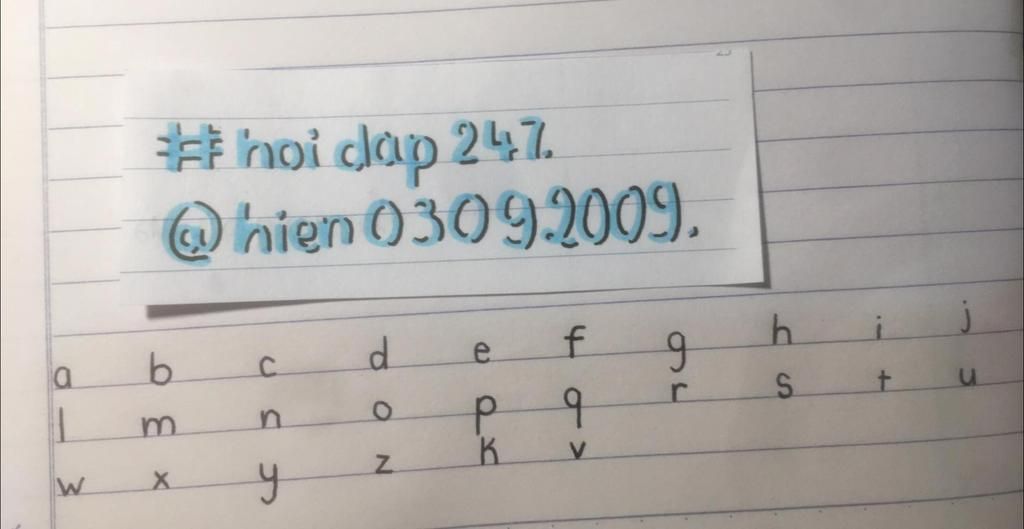 #hoi dap 247.
@hien03092009.
a b c d e f g h i j
l m n o p q r s t u
w x y z k v